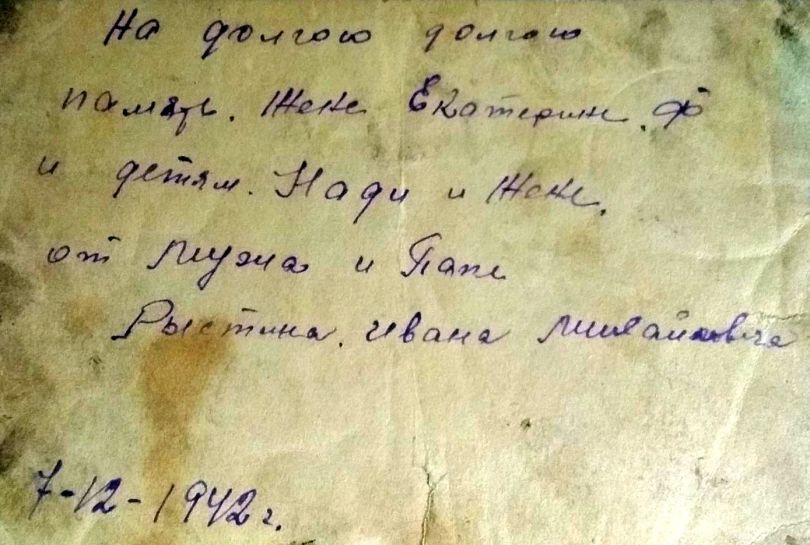 На долгою долгою
память. Жене Екатерин. Ф
и детям. Нади и Жене.
от мужа и Папе
Рыстина. Ивана Михайловича
7-12-1942 г.